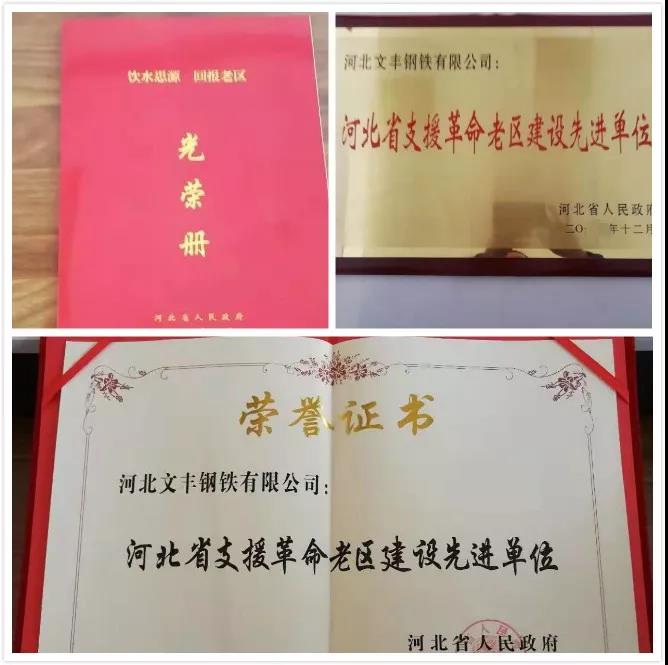 饮水思源 回报老区
光荣册
河北省人民政府
河北文丰钢铁有限公司：
河北省支援革命老区建设先进单位
河北省人民政府
年十二月
荣誉证书
河北文丰钢铁有限公司：
河北省支援革命老区建设先进单位
河北省人民政府